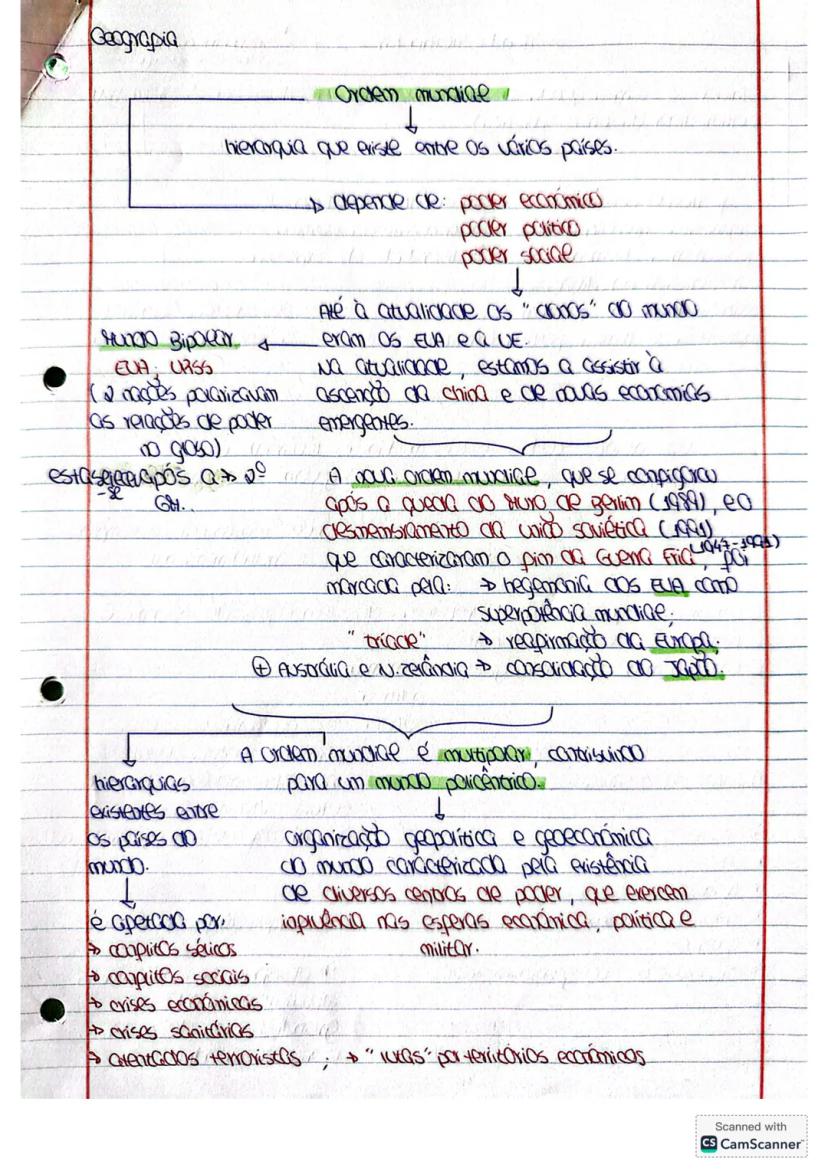 Geografia
Ordem mundial
hierarquia que existe entre os vários países.
depende de: poder económico
poder político
poder social
Até à atualidade os "donos" do mundo
eram os EUA e a UE.
Na atualidade, estamos a assistir à
ascenção da china e de novas economias
emergentes.
Mundo Bipolar
EUA; URSS
(2 nações polarizavam
as relações de poder
no globo)
estabeleceu-se após a → 2º
GM..
A nova ordem mundial, que se configurou
após a queda do Muro de Berlim (1989), e o
desmembramento da união soviética (1991)
que caracterizaram o fim da Guerra Fria (1947-1991), foi
marcada pela: → hegemonia dos EUA como
superpotência mundial;
"tríade" → reafirmação da Europa;
+ Austrália e N. Zelândia → consolidação do Japão.
A ordem mundial é multipolar, contribuindo
para um mundo policêntrico.
hierarquias
existentes entre
os países do
mundo.
é afetada por:
→ conflitos bélicos
→ conflitos sociais
→ crises económicas
→ crises sanitárias
→ atentados terroristas ; → "lutas" por territórios económicos
organização geopolítica e geoeconómica
do mundo caracterizada pela existência
de diversos centros de poder, que exercem
influência nas esferas económica, política e
militar.
Scanned with
CS CamScanner